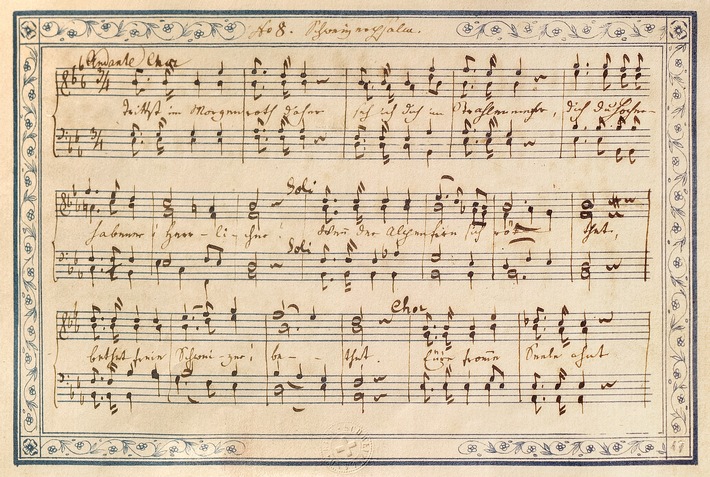 No 8. Schweizerpsalm.
Andante Chor
3/4
Trittst im Morgenroth daher seh ich dich im Strahlenmeer, dich du Hocher-
3/4
Soli
habener! Herr-li-cher! Wenn der Alpenfirn sich röt thet,
Soli
Chor
bethet freie Schwei-zer! be- - thet. Eure fromme Seele ahnt